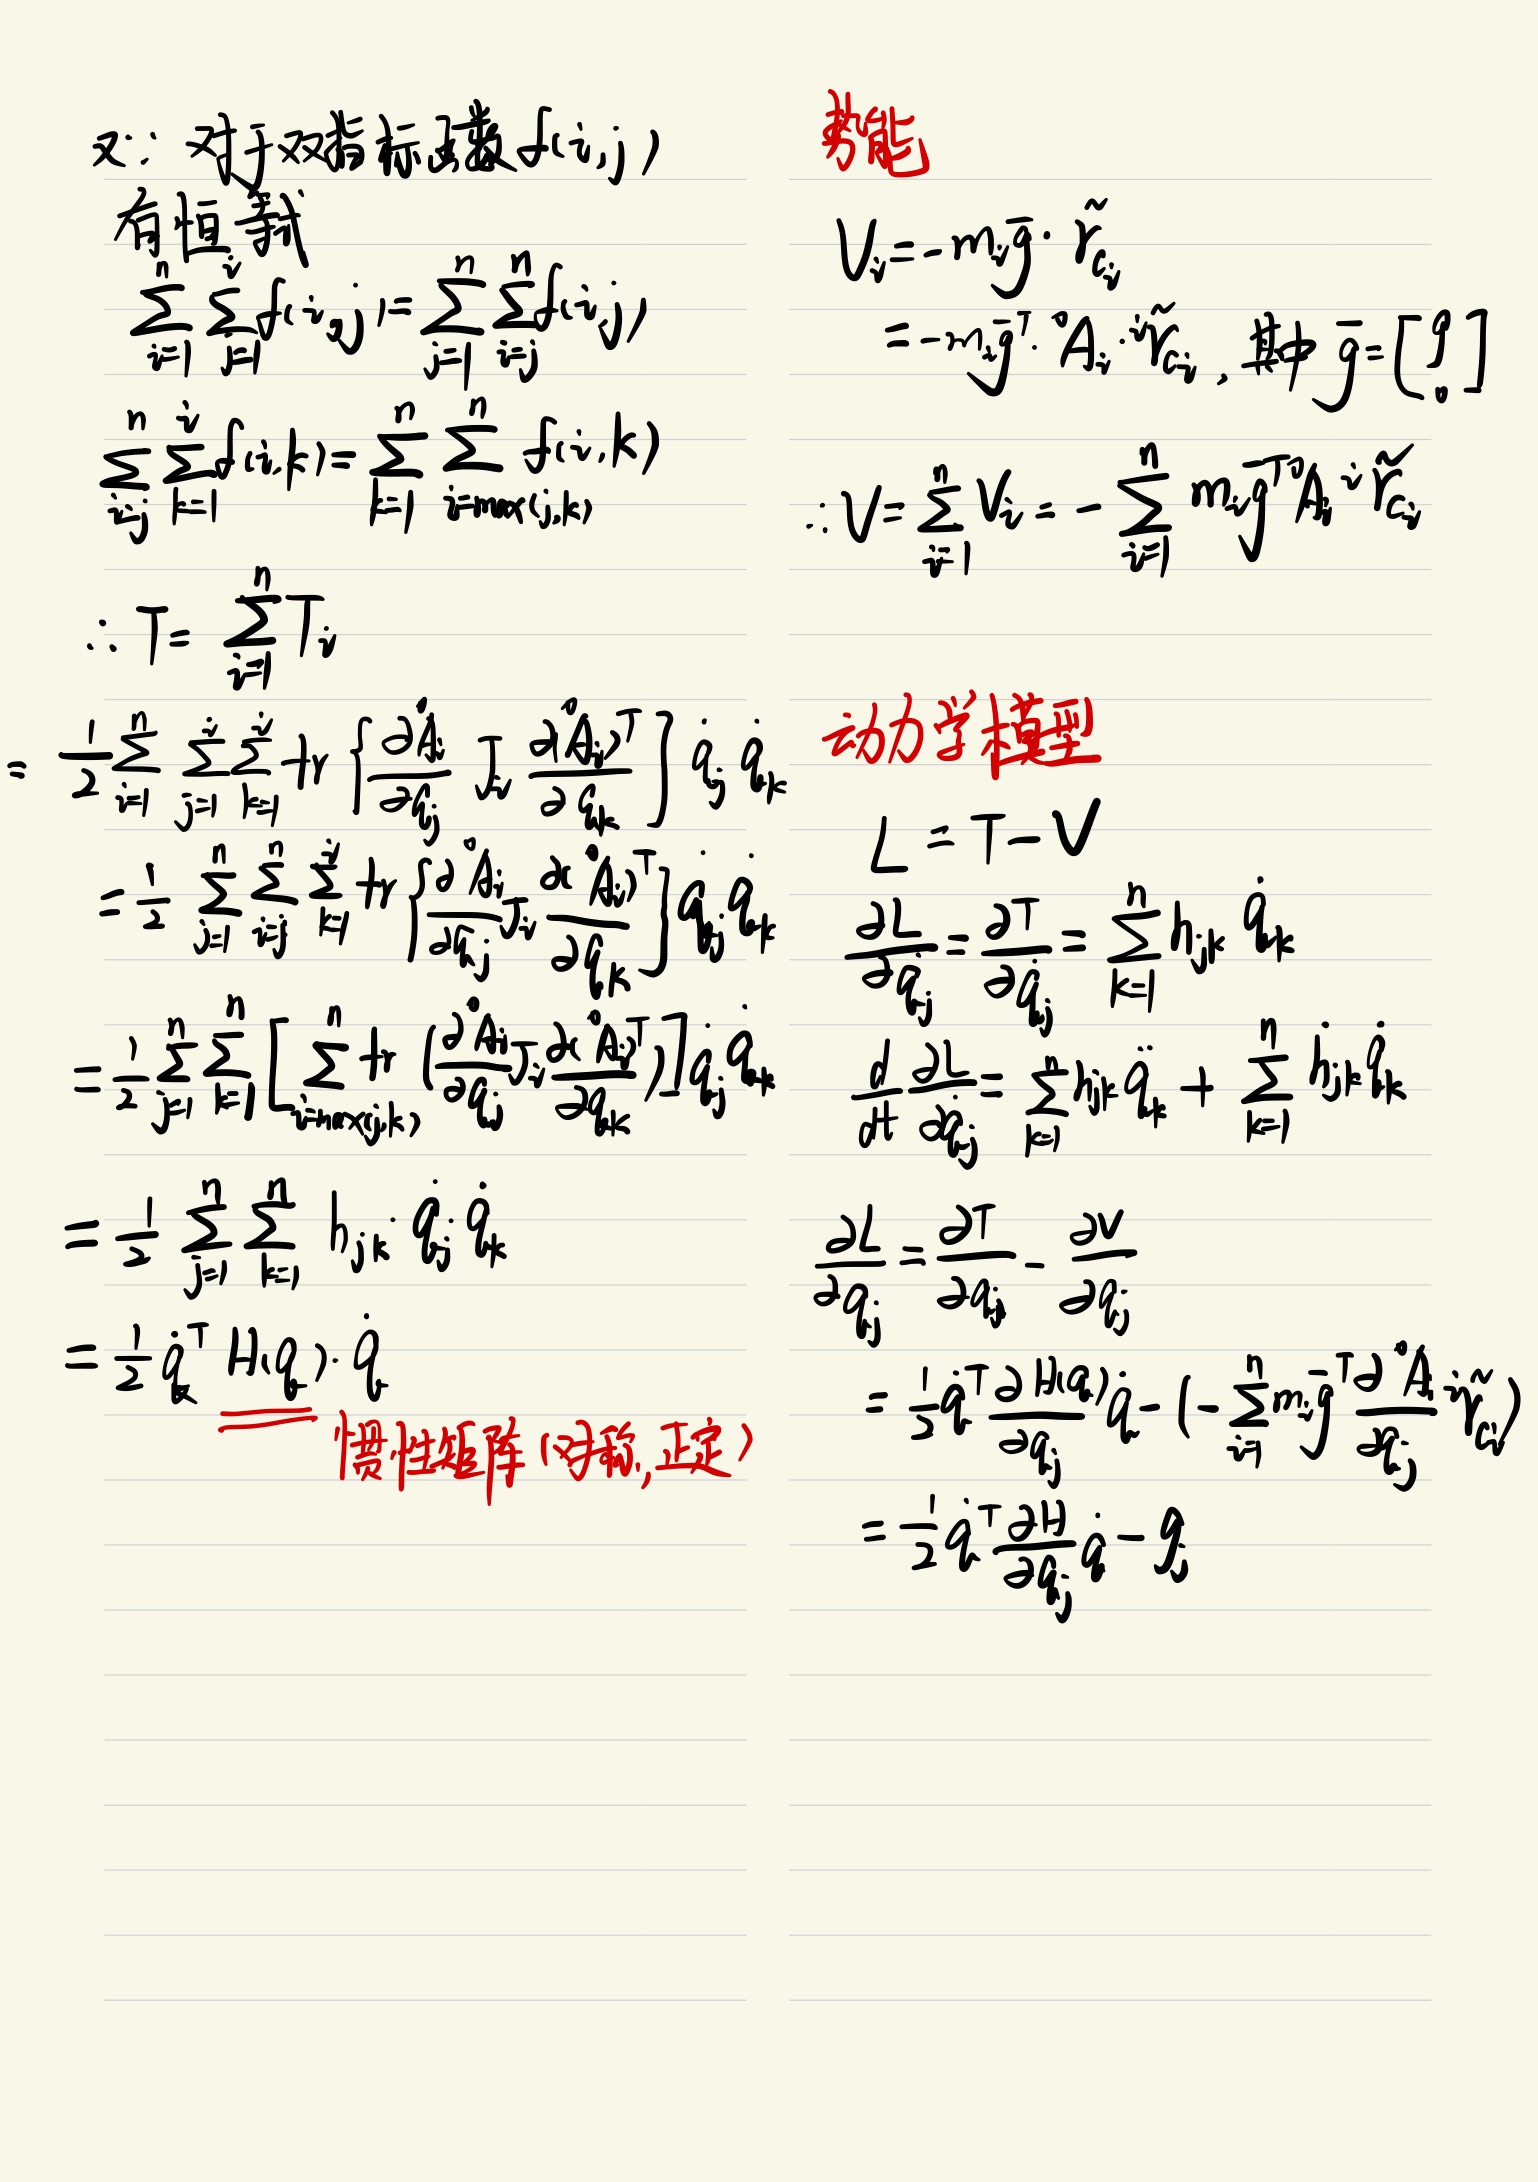 又∵ 对于双指标函数 f(i,j)
有恒等式
$\sum_{i=1}^{n}\sum_{j=1}^{i} f(i,j) = \sum_{j=1}^{n}\sum_{i=j}^{n} f(i,j)$
$\sum_{i=j}^{n}\sum_{k=1}^{i} f(i,k) = \sum_{k=1}^{n}\sum_{i=\max(j,k)}^{n} f(i,k)$
$\therefore T = \sum_{i=1}^{n} T_i$
$= \frac{1}{2}\sum_{i=1}^{n}\sum_{j=1}^{i}\sum_{k=1}^{i} tr\left\{\frac{\partial {}^0A_i}{\partial q_j} J_i \frac{\partial ({}^0A_i)^T}{\partial q_k}\right] \dot{q}_j \dot{q}_k$
$= \frac{1}{2}\sum_{j=1}^{n}\sum_{i=j}^{n}\sum_{k=1}^{i} tr\left\{\frac{\partial {}^0A_i}{\partial q_j} J_i \frac{\partial ({}^0A_i)^T}{\partial q_k}\right] \dot{q}_j \dot{q}_k$
$= \frac{1}{2}\sum_{j=1}^{n}\sum_{k=1}^{n}\left[\sum_{i=\max(j,k)}^{n} tr\left(\frac{\partial {}^0A_i}{\partial q_j} J_i \frac{\partial ({}^0A_i)^T}{\partial q_k}\right)\right] \dot{q}_j \dot{q}_k$
$= \frac{1}{2}\sum_{j=1}^{n}\sum_{k=1}^{n} h_{jk} \dot{q}_j \dot{q}_k$
$= \frac{1}{2}\dot{q}^T H(q) \cdot \dot{q}$
惯性矩阵(对称,正定)
势能
$V_i = -m_i \bar{g} \cdot \tilde{r}_{c_i}$
$= -m_i \bar{g}^T \cdot {}^0A_i \cdot {}^i\tilde{r}_{c_i}$, 其中 $\bar{g} = \begin{bmatrix} g \\ 0 \end{bmatrix}$
$\therefore V = \sum_{i=1}^{n} V_i = -\sum_{i=1}^{n} m_i \bar{g}^T {}^0A_i {}^i\tilde{r}_{c_i}$
动力学模型
$L = T - V$
$\frac{\partial L}{\partial \dot{q}_j} = \frac{\partial T}{\partial \dot{q}_j} = \sum_{k=1}^{n} h_{jk} \dot{q}_k$
$\frac{d}{dt}\frac{\partial L}{\partial \dot{q}_j} = \sum_{k=1}^{n} h_{jk} \ddot{q}_k + \sum_{k=1}^{n} \dot{h}_{jk} \dot{q}_k$
$\frac{\partial L}{\partial q_j} = \frac{\partial T}{\partial q_j} - \frac{\partial V}{\partial q_j}$
$= \frac{1}{2}\dot{q}^T \frac{\partial H(q)}{\partial q_j} \dot{q} - (-\sum_{i=1}^{n} m_i \bar{g}^T \frac{\partial {}^0A_i}{\partial q_j} {}^i\tilde{r}_{c_i})$
$= \frac{1}{2}\dot{q}^T \frac{\partial H}{\partial q_j} \dot{q} - g_j$